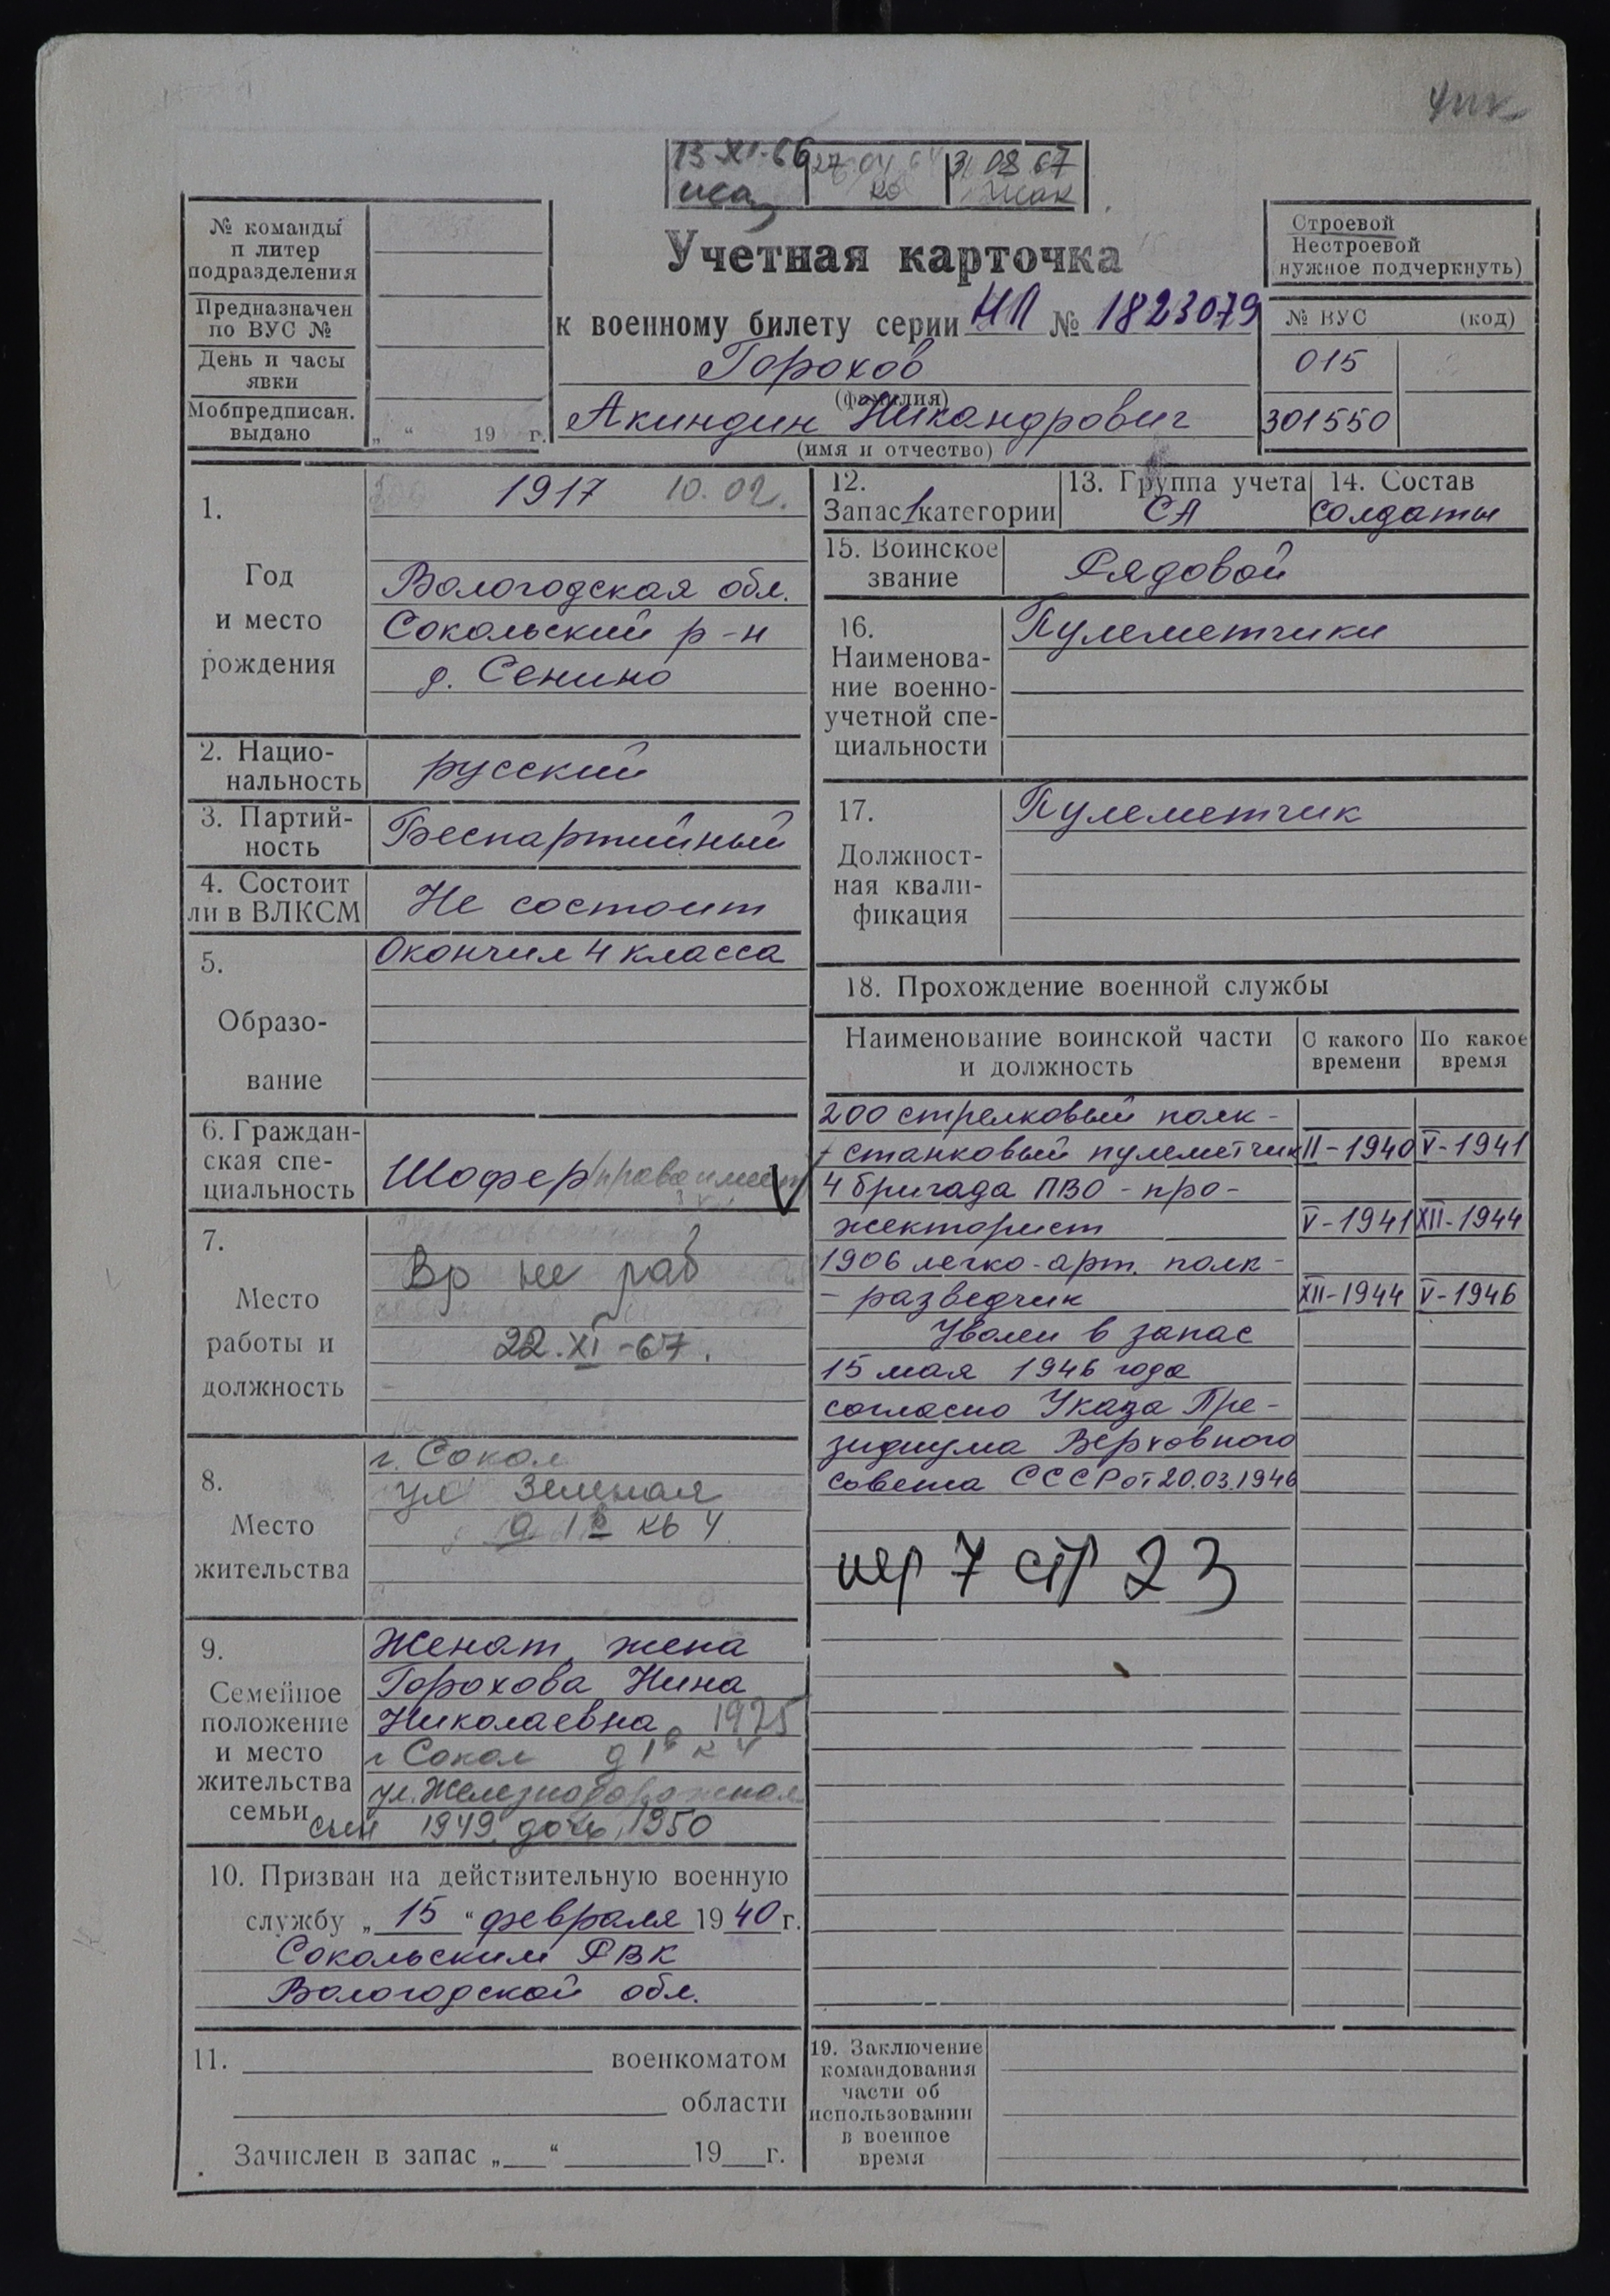 13 XI-66 27 04 31 08 67
№ команды
и литер
подразделения
Предназначен
по ВУС №
День и часы
явки
Мобпредписан.
выдано „ “ 19 г.
Учетная карточка
к военному билету серии НП № 1823079
Горохов
(фамилия)
Акиндин Никандрович
(имя и отчество)
Строевой
Нестроевой
нужное подчеркнуть)
№ ВУС (код)
015
301550
1.
Год
и место
рождения
1917 10.02.
Вологодская обл.
Сокольский р-н
д. Сенино
2. Нацио-
нальность
русский
3. Партий-
ность
Беспартийный
4. Состоит
ли в ВЛКСМ
Не состоит
5.
Образо-
вание
Окончил 4 класса
6. Граждан-
ская спе-
циальность
Шофер/права имеет
7.
Место
работы и
должность
Вр не раб
22.XI-67.
8.
Место
жительства
г. Сокол
ул Зеленая
д 1в кв 4.
9.
Семейное
положение
и место
жительства
семьи
Женат, жена
Горохова Нина
Николаевна, 1925
г Сокол д 1в к 4
ул. Железнодорожная
сын 1949 дочь 1950
10. Призван на действительную военную
службу „ 15 “ февраля 1940 г.
Сокольским РВК
Вологодской обл.
11. военкоматом
области
Зачислен в запас „ “ 19 г.
12.
Запас 1 категории
13. Группа учета
СА
14. Состав
солдаты
15. Воинское
звание
Рядовой
16.
Наименова-
ние военно-
учетной спе-
циальности
Пулеметчики
17.
Должност-
ная квали-
фикация
Пулеметчик
18. Прохождение военной службы
Наименование воинской части
и должность
С какого
времени
По какое
время
200 стрелковый полк -
- станковый пулеметчик II-1940 V-1941
4 бригада ПВО - про-
жекторист V-1941 XII-1944
1906 легко-арт. полк -
- разведчик XII-1944 V-1946
Уволен в запас
15 мая 1946 года
согласно Указа Пре-
зидиума Верховного
совета СССР от 20.03.1946
пер 7 стр 23
19. Заключение
командования
части об
использовании
в военное
время